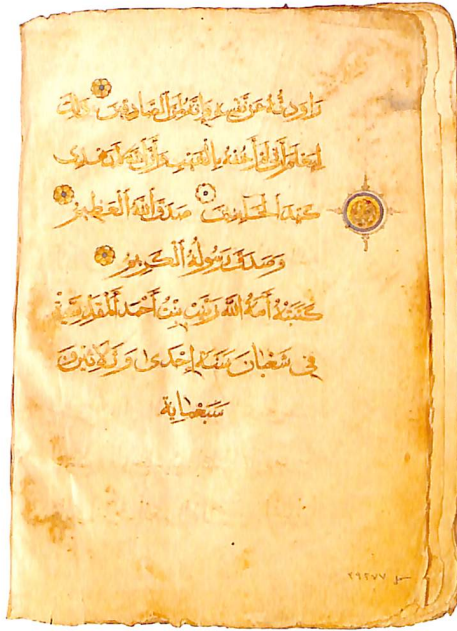 راودته عن نفسه وإنه لمن الصادقين ذلك
ليعلم أني لم أخنه بالغيب وأن الله لا يهدي
كيد الخائنين صدق الله العظيم
وصدق رسوله الكريم
كتبته أمة الله زينب بنت أحمد المقدسية
في شعبان سنة إحدى وثلاثين و
سبعماية
٢٩٢٧٧